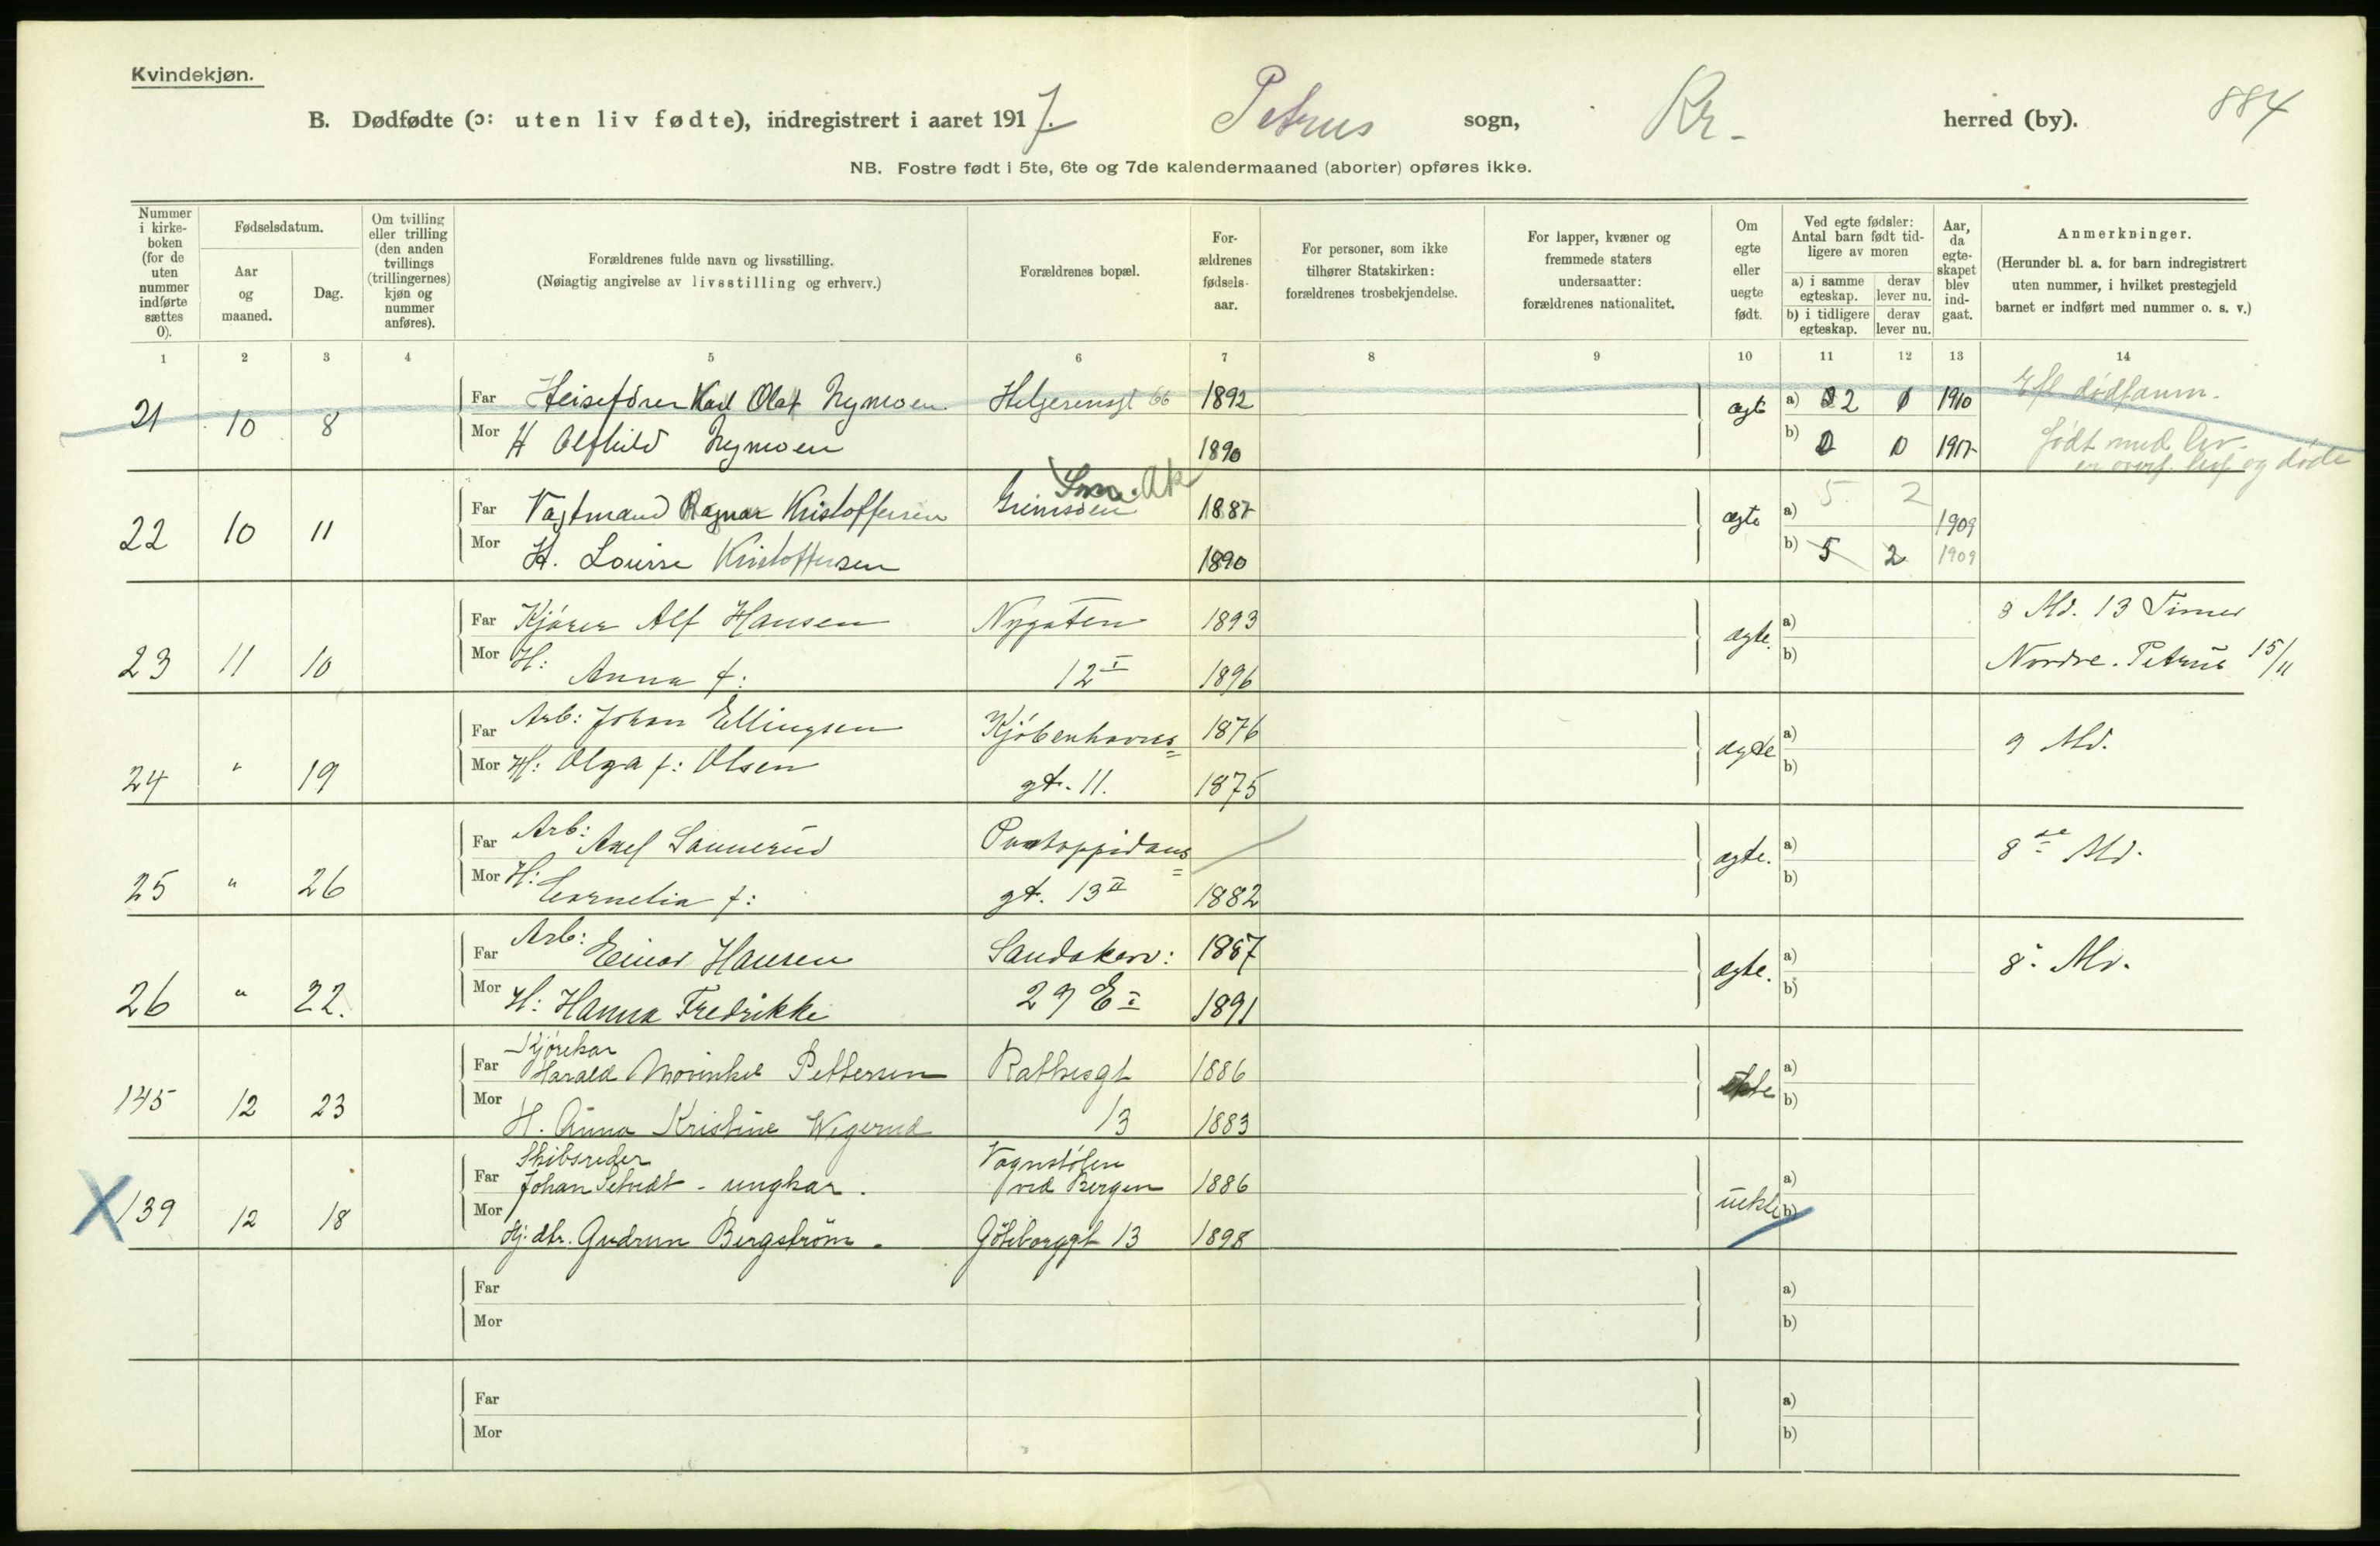 Kvindekjøn.
B. Dødfødte (ɔ: uten liv fødte), indregistrert i aaret 1917. Petrus sogn, Kr. herred (by). 884
NB. Fostre født i 5te, 6te og 7de kalendermaaned (aborter) opføres ikke.
Nummer i kirke-boken (for de uten nummer indførte sættes 0).
Fødselsdatum.
Aar og maaned.
Dag.
Om tvilling eller trilling (den anden tvillings (trillingernes) kjøn og nummer anføres).
Forældrenes fulde navn og livsstilling.
(Nøiagtig angivelse av livsstilling og erhverv.)
Forældrenes bopæl.
For-ældrenes fødsels-aar.
For personer, som ikke tilhører Statskirken: forældrenes trosbekjendelse.
For lapper, kvæner og fremmede staters undersaatter: forældrenes nationalitet.
Om egte eller uegte født.
Ved egte fødsler: Antal barn født tid-ligere av moren
a) i samme egteskap. derav lever nu.
b) i tidligere egteskap. derav lever nu.
Aar, da egte-skapet blev ind-gaat.
Anmerkninger.
(Herunder bl. a. for barn indregistrert uten nummer, i hvilket prestegjeld barnet er indført med nummer o. s. v.)
1 2 3 4 5 6 7 8 9 10 11 12 13 14
Far Heisefører Karl Olaf Nymoen Helgesensgt 66 1892 a) 2 1910
21 10 8 ægte
Mor H Nymoen 1890 b) 0 0 født med liv og døde
Far Vagtmand Ragnar Kristoffersen Grimsøen Ak 1887 a) 5 2 1909
22 10 11 ægte
Mor H. Louise Kristoffersen 1890 b) 5 2 1909
Far Kjører Alf Hansen Nygaten 1893 a) 8 Md. 13 Timer
23 11 10 ægte.
Mor H: Anna f: 12 I 1896 b) Nordre. Petrus 15/11
Far Arb: Johan Ellingsen Kjøbenhavns= 1876 a) 9 Md.
24 " 19 ægte
Mor H: Olga f: Olsen gt. 11. 1875 b)
Far Arb: Axel Sannerud Pontoppidans= a) 8de Md.
25 " 26 ægte.
Mor H: Cornelia f: gt. 13 II 1882 b)
Far Arb: Einar Hansen Sandakerv: 1887 a) 8. Md.
26 " 22. ægte.
Mor H: Hanna Fredrikke 29 E I 1891 b)
Kjørekar
Far Harald Movinkel Pettersen Rathkesgt 1886 a)
145 12 23 ekte
Mor H. Anna Kristine Wegerud 13 1883 b)
Skibsreder Vognstølen
Far Johan - ungkar. ved Bergen 1886 a)
X 139 12 18 uekte
Mor Hj. dtr. Gudrun Bergstrøm. Göteborggt 13 1898 b)
Far a)
Mor b)
Far a)
Mor b)